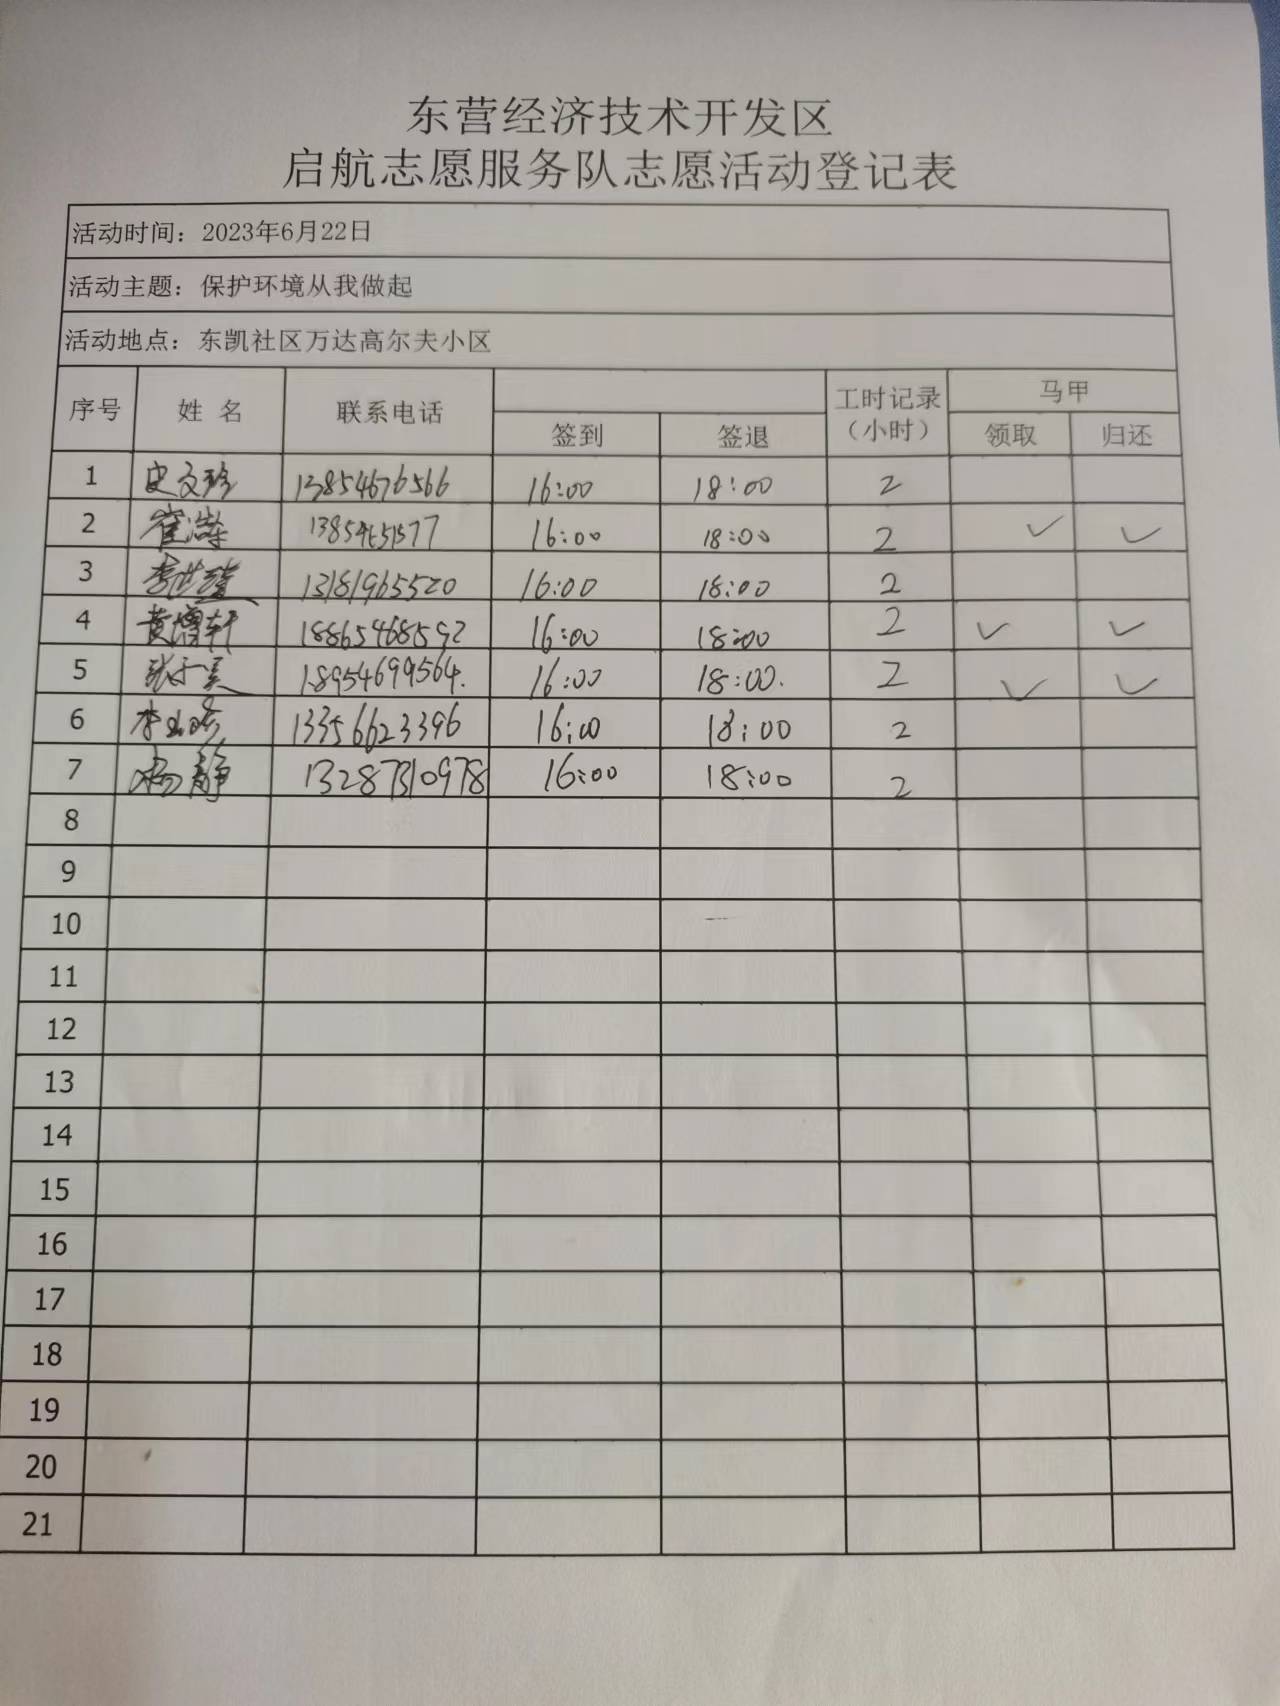 东营经济技术开发区
启航志愿服务队志愿活动登记表
活动时间：2023年6月22日
活动主题：保护环境从我做起
活动地点：东凯社区万达高尔夫小区
序号 姓 名 联系电话 签到 签退 工时记录（小时） 马甲 领取 归还
1 史文珍 13854676566 16:00 18:00 2
2 崔浩 16:00 18:00 2 ✓ ✓
3 李世 13181965520 16:00 18:00 2
4 黄增轩 18865468592 16:00 18:00 2 ✓ ✓
5 张子昊 18954699564. 16:00 18:00. 2 ✓ ✓
6 李 13356623396 16:00 18:00 2
7 杨静 13287310978 16:00 18:00 2
8
9
10
11
12
13
14
15
16
17
18
19
20
21